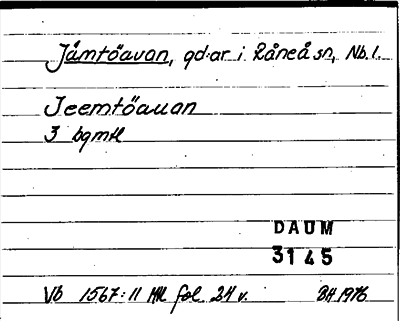 Jämtöavan, gd:ar i Råneå sn, Nb.l.
Jeemtöauan
3 bgmtl
DAUM
3145
Vb 1567:11 Ml fol. 24 v. BH 1976